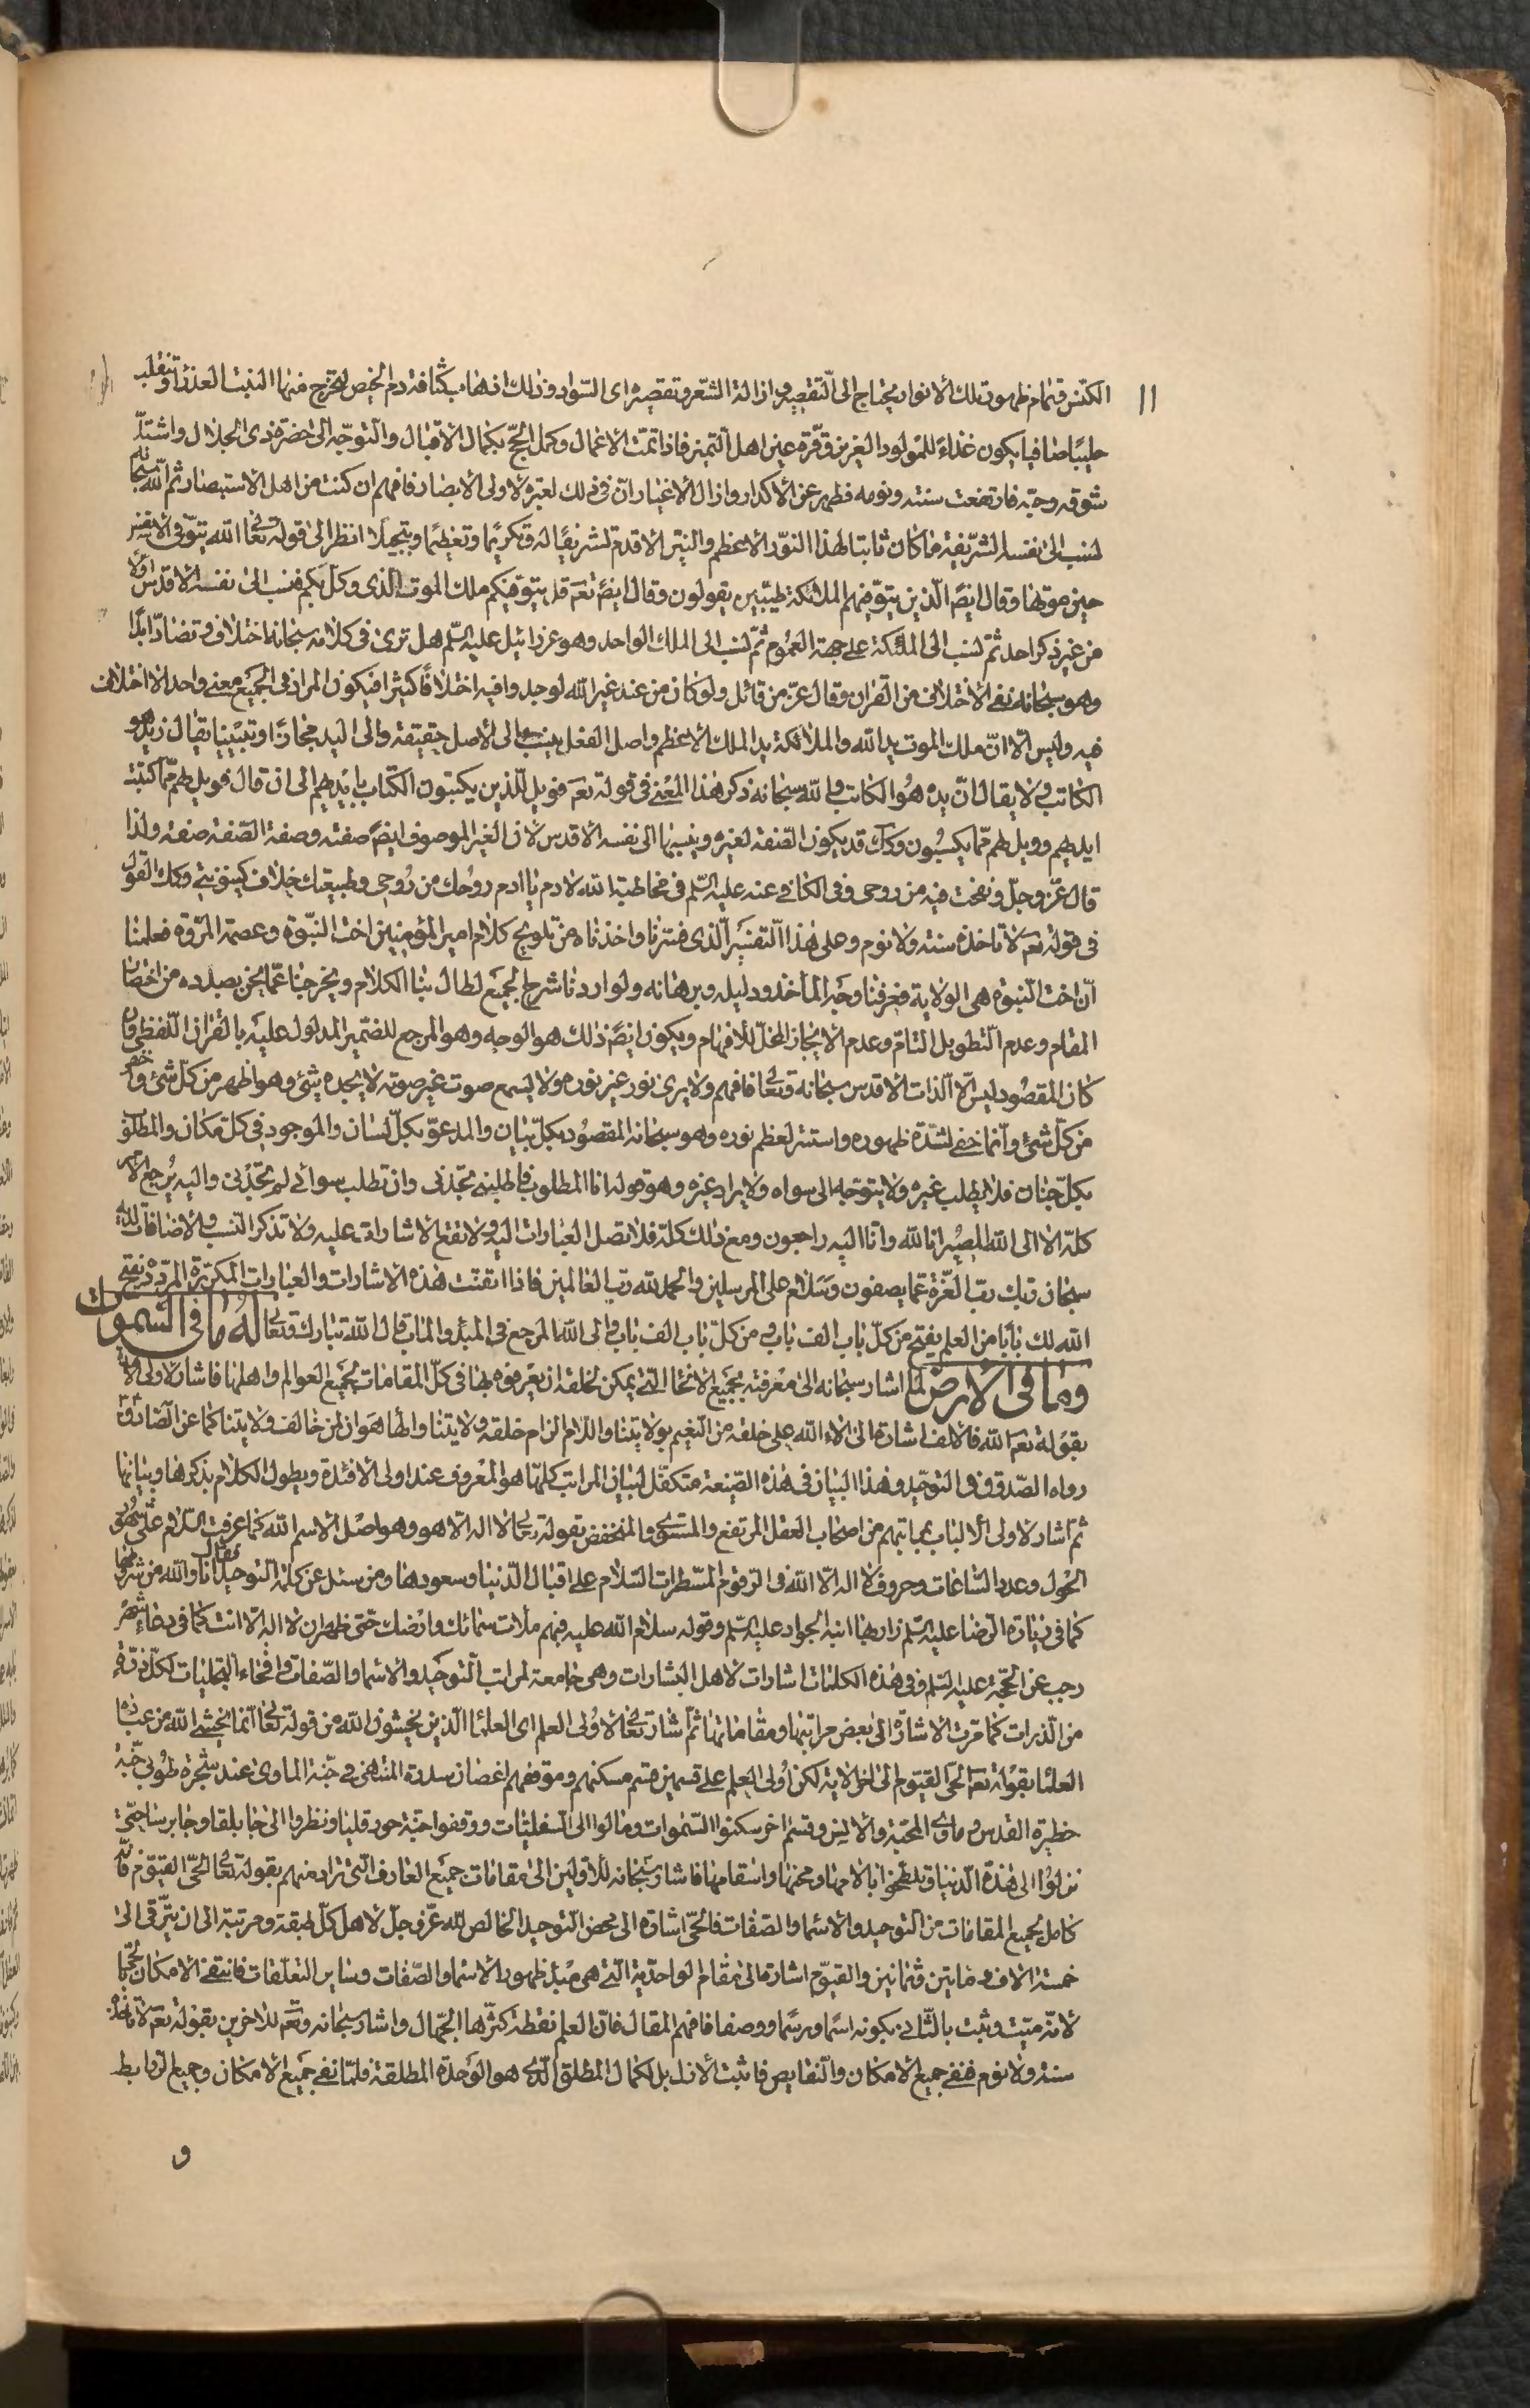 ١١
الكنس وتمام ظهور تلك الانوار يحتاج الى التقصير وازالة الشعر وتقصيره اى السواد وذلك اذهاب كثافة دم الحيض لتخرج منها البنت العذراء وتنقلب
حليبًا صافيا يكون غذاءً للمولود العزيز وقرّة عين اهل التميز فاذا تمّت الاعمال وكمل الحجّ بكمال الاقبال والتوجّه الى حضرة ذى الجلال واشتدّ
شوقه وحبّه فارتفعت سنته ونومه فظهر عن الاكدار وازال الاغيار انّ فى ذلك لعبرة لاولى الابصار فافهم ان كنت من اهل الاستبصار ثم الله سبحانه
لنسب الى نفسه الشريفة ما كان ثابتا لهذا النور الاعظم والنير الاقدم تشريفًا له وتكريمًا وتعظيمًا وتبجيلًا انظر الى قوله تعالى الله يتوفى الانفس
حين موتها وقال ايضً الذين يتوفيهم الملئكة طيبين يقولون وقال ايضً تعم قل يتوفيكم ملك الموت الذى وكل بكم فنسب الى نفسه الاقدس اولا
من غير ذكر احد ثمّ نسب الى الملئكة على جهة العموم ثمّ نسب الى الملك الواحد وهو عزرائيل عليه السّلم هل ترى فى كلامه سبحانه اختلاف وتضادّ ابدًا
وهو سبحانه نفى الاختلاف من القران وقال عزّ من قائل ولو كان من عند غير الله لوجدوا فيه اختلافًا كثيرا فيكون المراد فى الجميع معنى واحد لا اختلاف
فيه وليس الا انّ ملك الموت يد الله والملائكة يد الملك الاعظم واصل الفعل ينسب الى الاصل حقيقة والى اليد مجازًا وتبيينا يقال زيد هو
الكاتب ولا يقال انّ يده هو الكاتب والله سبحانه ذكر هذا المعنى فى قوله تعم فويل للذين يكتبون الكتاب بايديهم الى ان قال فويل لهم ممّا كتبت
ايديهم وويل لهم ممّا يكسبون وكك قد يكون الصّفة لغيره وينسبها الى نفسه الاقدس لان الغير الموصوف ايضً صفته وصفة الصّفة صفة ولذا
قال عزّ وجلّ ونفخت فيه من روحى وفى الكافى عنه عليه السّلم فى مخاطبة الله لادم يا ادم روحك من روحى وطبيعتك خلاف كينونيتى وكك القول
فى قوله تعم لا تاخذه سنة ولا نوم وعلى هذا التفسير الذى فسّرنا واخذناه من تلويح كلام امير المؤمنين اخت النبّوة وعصمة المروّة فعلمنا
انّ اخت النبوّة هى الولاية فعرفنا وجه المأخذ ودليله وبرهانه ولو اردنا شرح الجميع لطال بنا الكلام ويخرجنا عمّا نحن بصدده من اختصار
المقام وعدم التطويل التامّ وعدم الايجاز المخلّ للافهام ويكون ايضً ذلك هو الوجه وهو المرجع للضمير المدلول عليه بالقران اللّفظى وان
كان المقصود ليس الا الذات الاقدس سبحانه وتعالى فافهم ولا يرى نور غير نوره ولا يسمع صوت غير صوته لا يجده شئ وهو اظهر من كلّ شئ واخفى
من كلّ شئ وانّما خفى لشدّة ظهوره واستتر لعظم نوره وهو سبحانه المقصود بكلّ بيان والمدعوّ بكلّ لسان والموجود فى كلّ مكان والمطلوب
بكلّ جنان فلا يطلب غيره ولا يتوجّه الى سواه ولا يراد غيره وهو قوله انا المطلوب فاطلبنى تجدنى وان تطلب سوائى لم تجدنى واليه يرجع الامر
كلّه الا الى الله المصير انا لله وانا اليه راجعون ومع ذلك كلّه فلا تصل العبارات اليه ولا تقع الاشارات عليه ولا تذكر النسب والاضافات لديه
سبحان ربّك ربّ العزّة عمّا يصفون وسلام على المرسلين والحمد لله ربّ العالمين فاذا اتقنت هذه الاشارات والعبارات المكررة المردّدة يفتح
الله لك بابا من العلم يفتح من كلّ باب الف باب ومن كلّ باب الف باب والى الله المرجع فى المبدء والماب قال الله تبارك وتعالى له ما فى السموات
وما فى الارض لما اشار سبحانه الى معرفته بجميع الانحاء التى يمكن لخلقه ان يعرفوه بها فى كلّ المقامات بجميع العوالم واهلها فاشار لاولى
بقوله تعم الله فالالف اشارة الى الاء الله على خلقه من النعيم بولايتنا واللام الزام خلقه ولايتنا والهاء هوان لمن خالف ولايتنا كما عن الصادق
رواه الصّدوق فى التوحيد وهذا البيان فى هذه الصّيغة متكفّل لبيان المراتب كلّها هو المعروف عند اولى الافئدة ويطول الكلام بذكرها وبيانها
ثم اشار لاولى الالباب بمراتبهم من اصحاب العقل المرتفع والمستوى والمنخفض بقوله تعالى لا اله الا هو وهو اصل الاسم الله كما عرفت السلام على شهور
الحول وعدد الساعات وحروف لا اله الا الله فى الرقوم المسطرات السّلام على اقبال الدّنيا وسعودها ومن سئل عن كلمة التوحيد فقال انا والله من شروطها
كما فى زيارة الرضا عليه السّلم زار بها ابنه الجواد عليه السّلم وقوله سلام الله عليه فبهم ملأت سمائك وارضك حتى ظهر ان لا اله الا انت كما فى دعاء شهر
رجب عن الحجّة عليه السّلم وفى هذه الكلمات اشارات لاهل البشارات وهى جامعة لمراتب التوحيد والاسماء والصّفات وانحاء التجليات لكلّ ذرّة
من الذرات كما مرّت الاشارة الى بعض مراتبها ومقاماتها ثمّ اشار تعالى لاولى العلم اى العلماء الذين يخشون الله من قوله تعالى انما يخشى الله من عباده
العلماء بقوله تعم الحىّ القيّوم الى اخر الاية لكن اولى العلم على قسمين قسم مسكنهم وموقفهم اغصان سدرة المنتهى فى جنّة الماوى عند شجرة طوبى جنّة
حظيرة القدس وماوى المحبّة والانس وقسم اخر سكنوا السّموات ومالوا الى السّفليات ووقفوا جنّة حورقليا ونظروا الى جابلقا وجابرسا حتى
نزلوا الى هذه الدنيا وتلطخوا بالامها ومحنها واسقامها فاشار سبحانه للاولين الى مقامات جميع المعارف التى تراد منهم بقوله تعالى الحىّ القيّوم فانّه
كامل بجميع المقامات من التوحيد والاسماء والصفات فالحىّ اشارة الى محض التوحيد الخالص لله عزّ وجلّ لاهل كلّ طبقة ومرتبة الى ان يترقى الى
خمسة الاف ومايتين وثمانين والقيّوم اشارة الى مقام الواحدية التى هى مبدء ظهور الاسماء والصّفات وساير التعلّقات فانتفى الامكان بحّيها
لانّه ميّت وثبت بالثانى بكونه اسمًا ورسمًا ووصفا فافهم المقال فانّ العلم نقطة كثّرها الجهال واشار سبحانه وتعم للاخرين بقوله تعم لا تاخذه
سنة ولا نوم فنفى جميع الامكان والنقايص فاثبت الازل بل الكمال المطلق الذى هو الوحدة المطلقة فلمّا نفى جميع الامكان وجميع الروابط
و